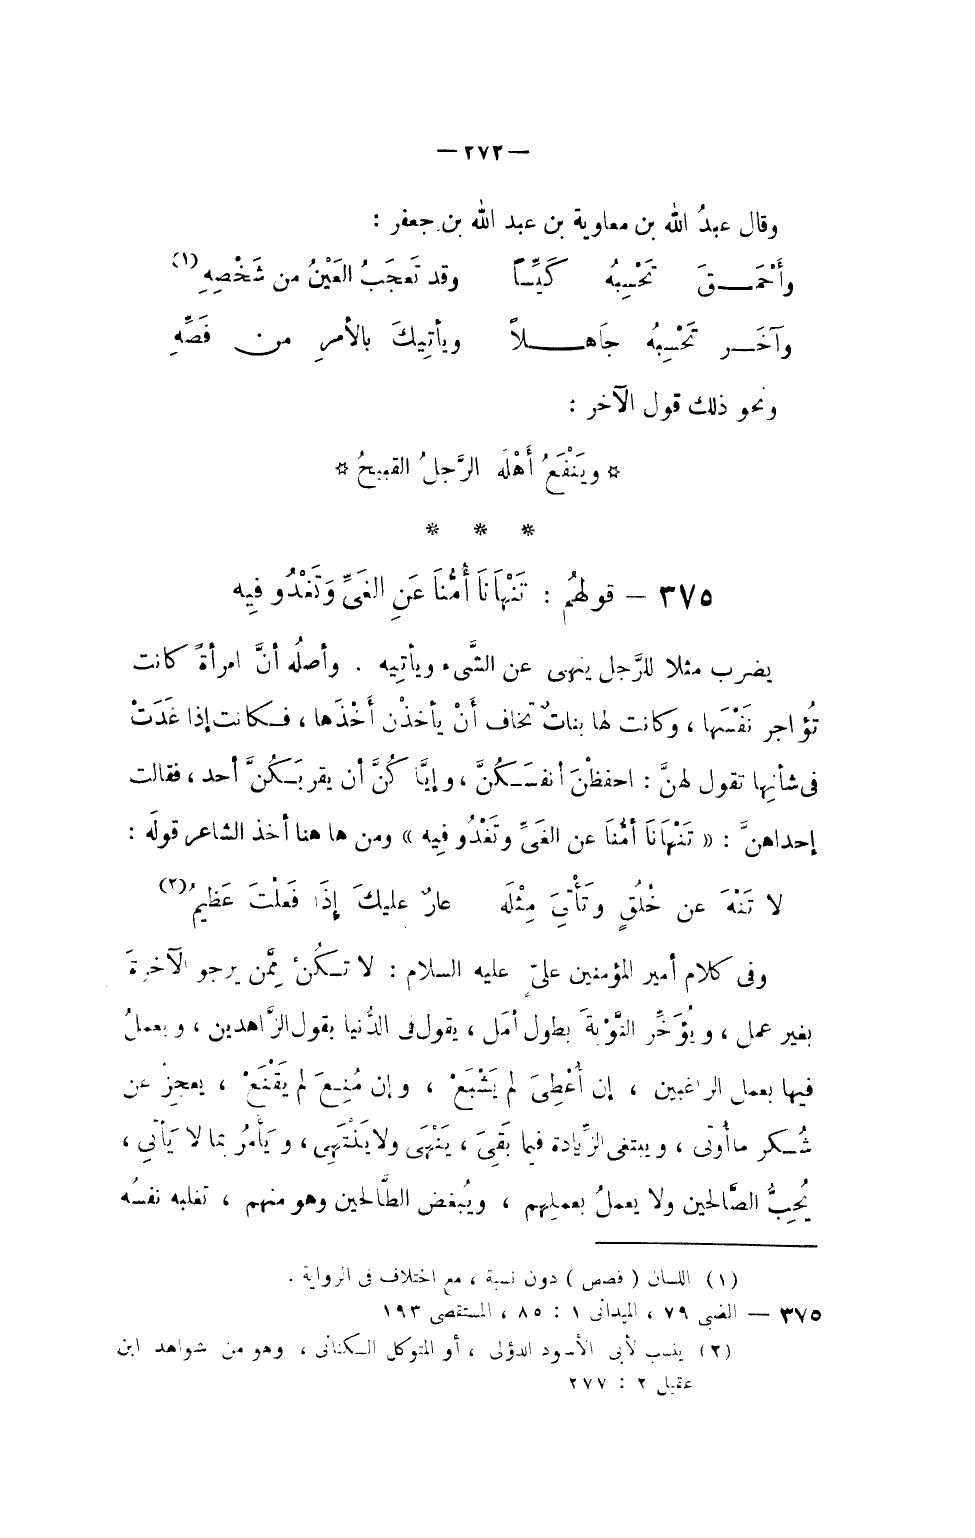 — ٢٧٢ —
وقال عبدُ الله بن معاوية بن عبد الله بن جعفر :
وأَحْمَـــقَ تَحْسِبهُ كَيِّسًا وقد تَعجَبُ العَيْنُ من شَخْصِهِ (١)
وآخَـــر تَحْسِبهُ جَاهـــلاً ويأتِيكَ بالأمرِ من فَصِّهِ
ونحو ذلك قول الآخر :
* ويَنْفَعُ أَهْلَه الرَّجلُ القبيحُ *
* * *
٣٧٥ — قولهُم : تَنْهَانَا أُمُّنَا عَنِ الغَىِّ وَتَغْدُو فِيه
يضرب مثلا للرَّجل ينهى عن الشَّىء ويأتِيه . وأصلُه أنَّ امرأةً كانت
تُؤاجر نَفْسَها ، وكانت لها بناتٌ تخاف أنْ يأخذْن أَخْذَها ، فـكانت إذا غَدَتْ
فى شأنِها تقول لهنَّ : احفظْنَ أنفسَـكُنَّ ، وإيَّا كُنَّ أن يقربَـكُنَّ أحد ، فقالت
إحداهنَّ : « تَنْهَانَا أمُّنَا عن الغَىِّ وتَغْدُو فِيه » ومن ها هنا أخذ الشاعر قولَه :
لا تَنْهَ عن خُلُقٍ وتَأْتِىَ مِثْلَه عارٌ عليكَ إِذَا فَعَلْتَ عَظِيمُ (٢)
وفى كلام أمير المؤمنين علىٍّ عليه السلام : لا تـكُنْ مِمَّن يرجو الآخرةَ
بغير عمل ، ويُؤَخِّر التَّوْبةَ بطول أمَل ، يقول فى الدُّنيا بقول الزَّاهدين ، ويعملُ
فيها بعمل الراغبين ، إن أُعْطِىَ لم يَشْبَعْ ، وإن مُنِعَ لم يَقْنَعْ ، يعجزُ عن
شُـكر ما أُوتى ، ويبتغى الزِّيادة فيما بَقِىَ ، يَنْهَى ولا يَنْتَهِى ، ويَأْمُرُ بما لا يَأتى ،
يُحِبُّ الصَّالحين ولا يعملُ بعملِهم ، ويُبغض الطَّالحين وهو منهم ، تغلبه نفسُه
(١) اللسان ( فصص ) دون نسبة ، مع اختلاف فى الرواية .
٣٧٥ — الضبى ٧٩ ، الميدانى ١ : ٨٥ ، المستقصى ١٩٣
(٢) ينسب لأبى الأسود الدؤلى ، أو المتوكل الـكنانى ، وهو من شواهد ابن
عقيل ٢ : ٢٧٧